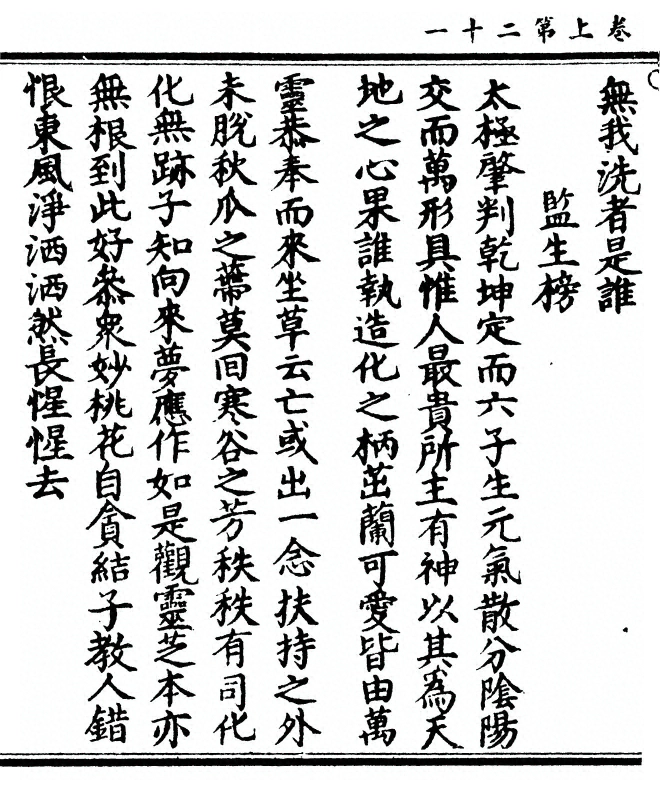 卷上第二十一
無我洗者是誰
監生榜
太極肇判乾坤定而六子生元氣散分陰陽
交而萬形具惟人最貴所主有神以其為天
地之心果誰執造化之柄茁蘭可愛皆由萬
靈恭奉而來坐草云亡或出一念扶持之外
未脫秋瓜之蔕莫回寒谷之芳秩秩有司化
化無跡子知向來夢應作如是觀靈芝本亦
無根到此好叅衆妙桃花自貪結子教人錯
恨東風淨洒洒然長惺惺去